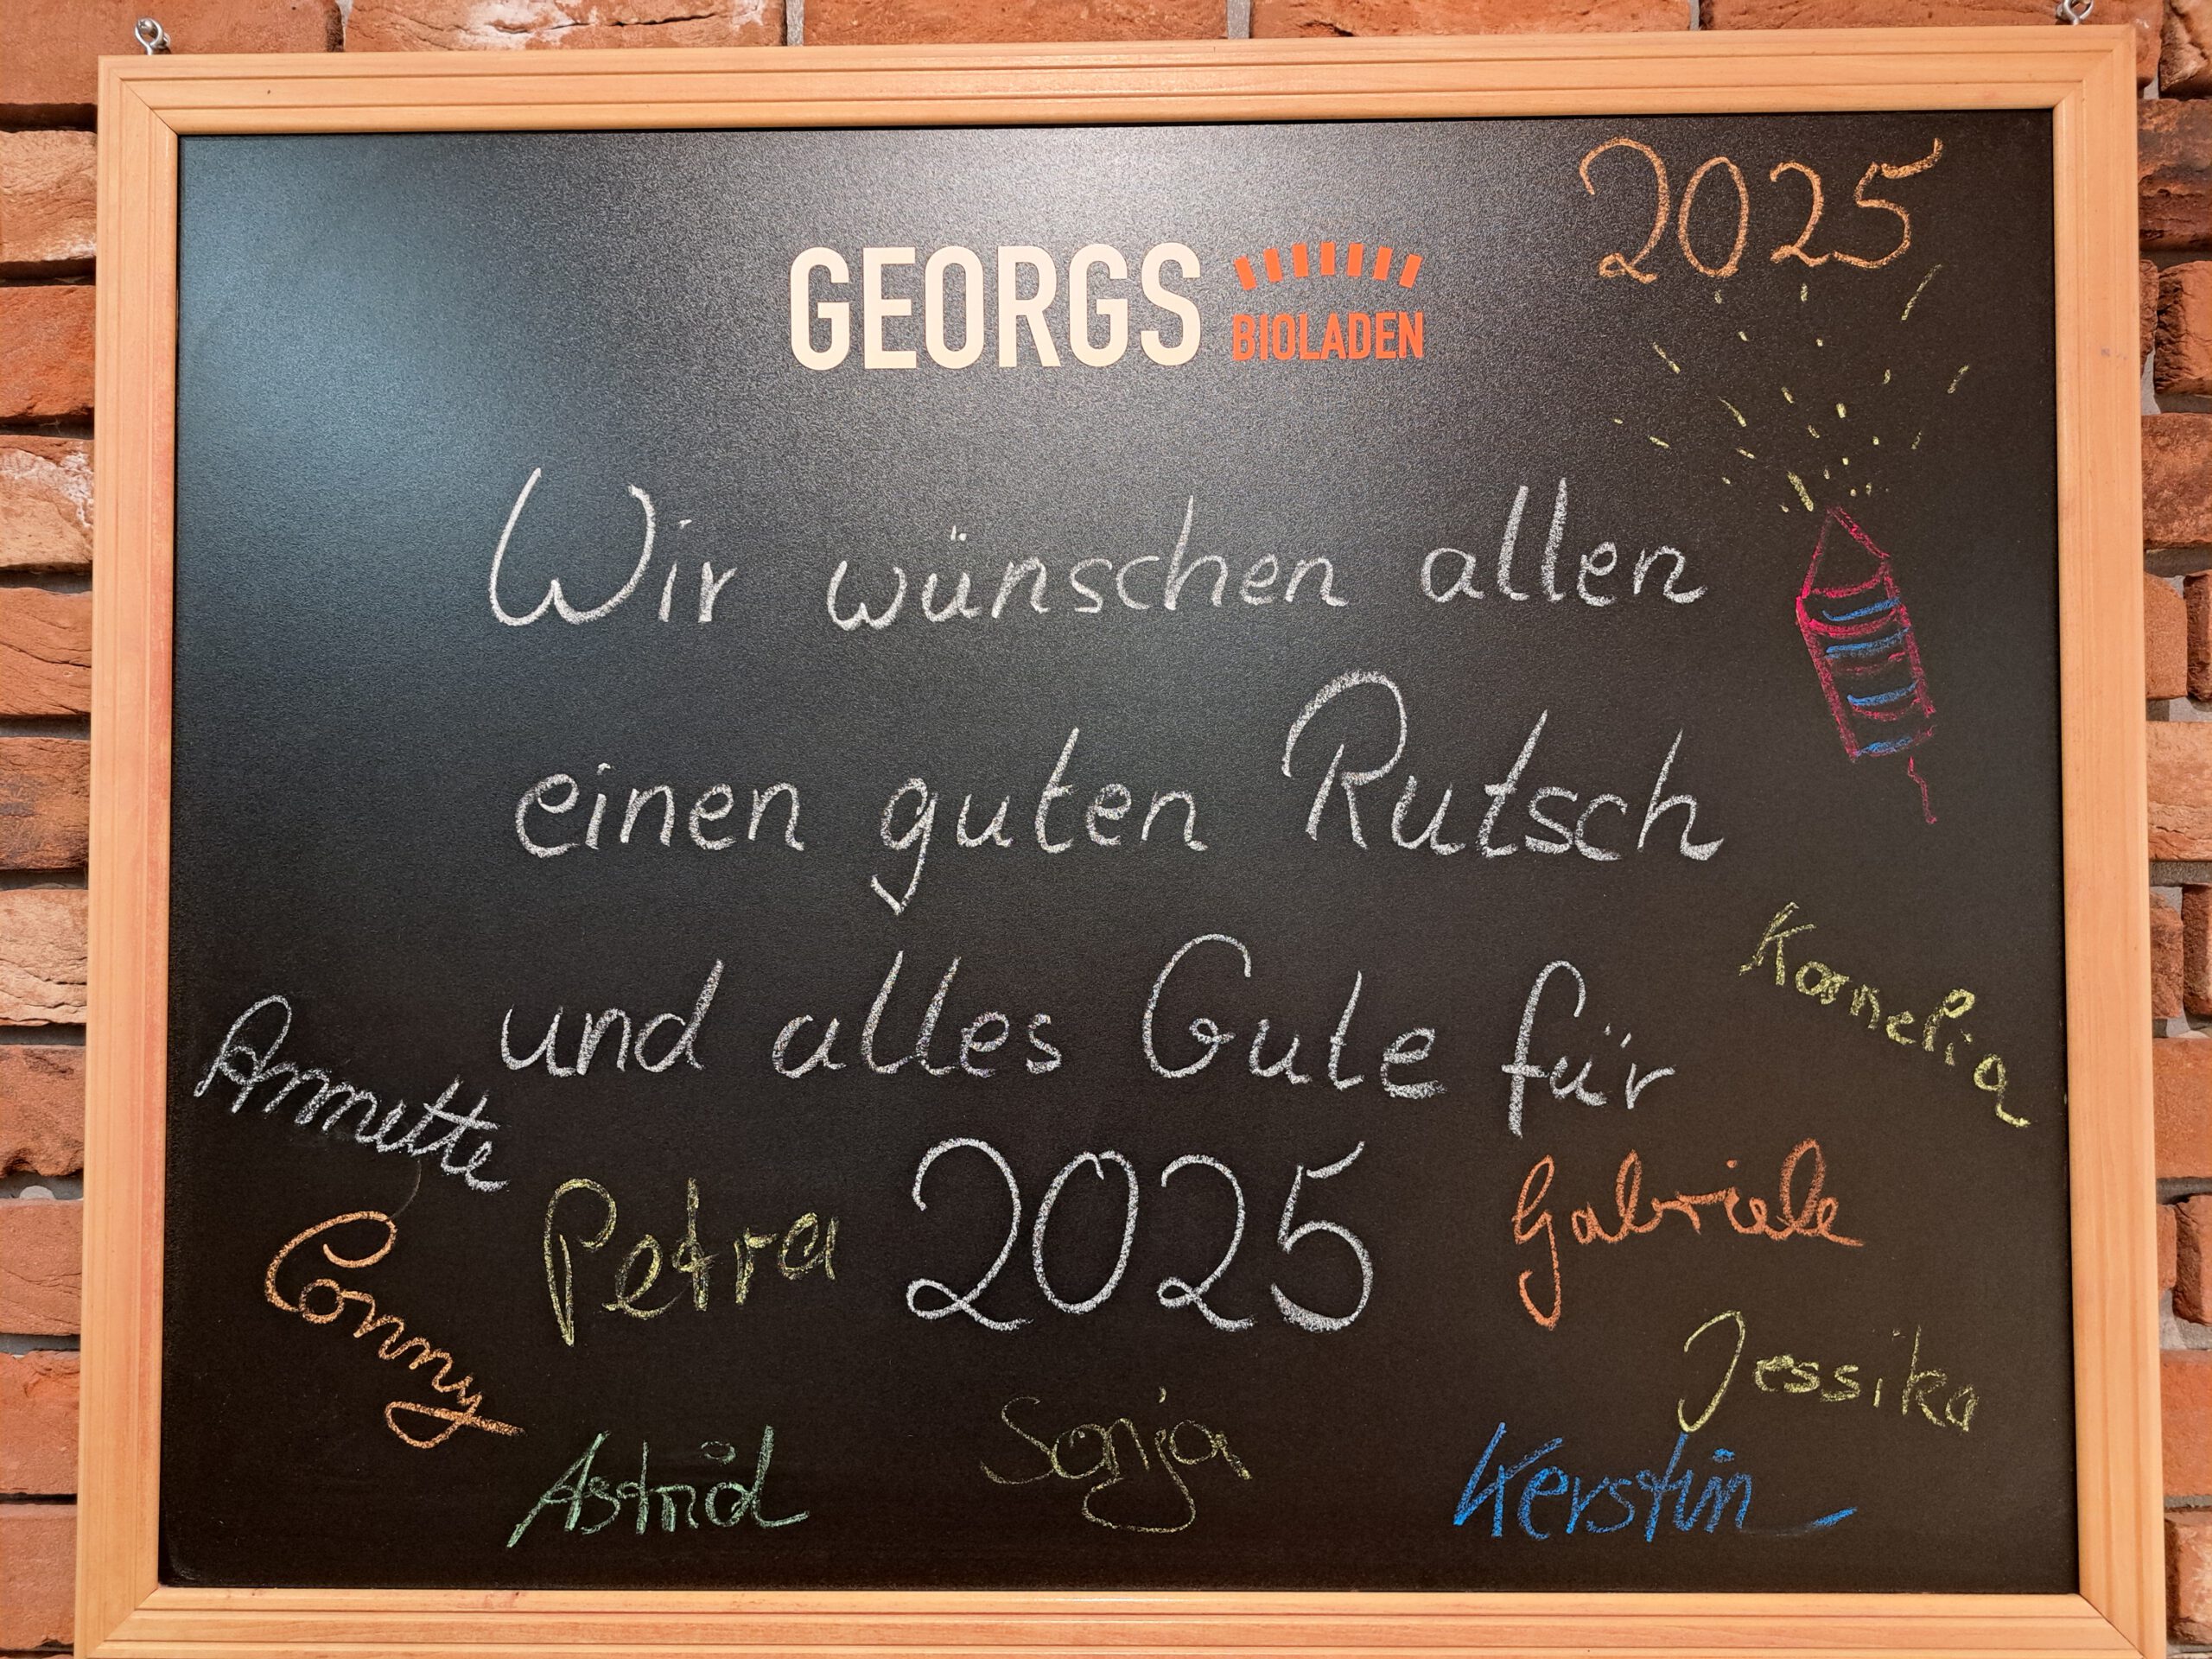 2025
GEORGS BIOLADEN
Wir wünschen allen
einen guten Rutsch
und alles Gute für
2025
Kornelia
Annette
Petra
Gabriele
Conny
Jessika
Astrid
Sonja
Kerstin